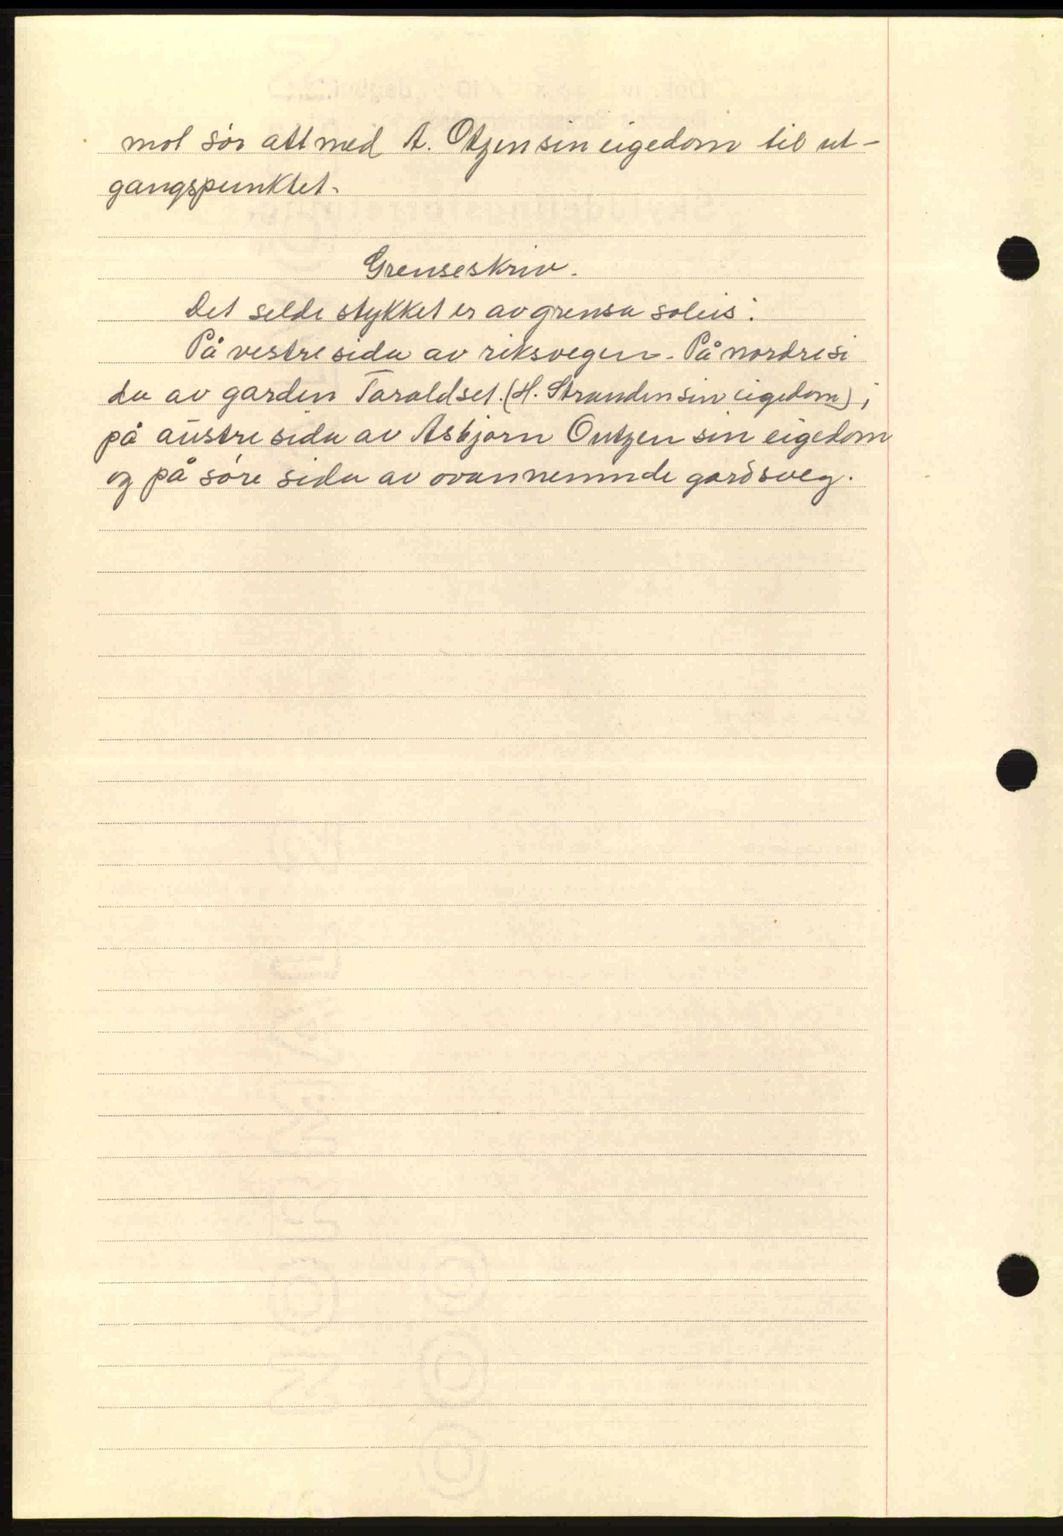 mot sør att med A. Otzen sin eigedom til ut-
gangspunktet.
Grenseskriv.
Det selde stykket er avgrensa soleis:
På vestre sida av riksvegen. På nordre si
da av garden Taraldset. (H. Stranden sin eigedom);
på austre sida av Asbjørn Outzen sin eigedom
og på søre sida av ovannemnde gardsveg.